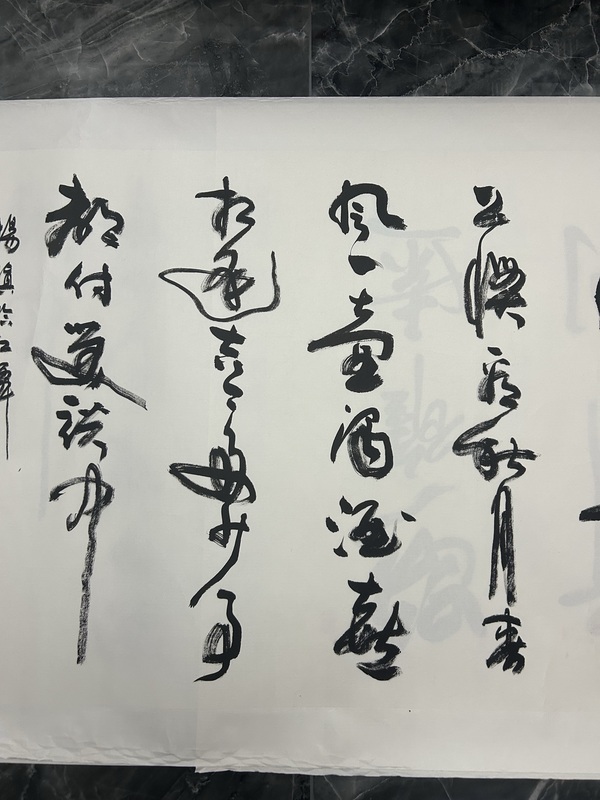 上慣看秋月春
風一壺濁酒喜
相逢古今多少事
都付笑談中